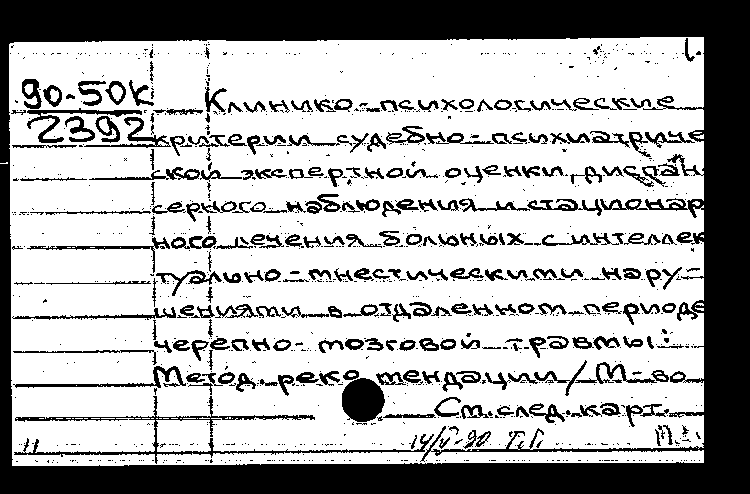 1.
90-50К Клинико-психологические
2392 критерии судебно-психиатриче
ской экспертной оценки, диспан-
серного наблюдения и стационар
ного лечения больных с интеллек
туально-мнестическими нару-
шениями в отдаленном периоде
черепно-мозговой травмы:
Метод. рекомендации / М-во
См. след. карт.
11 14/V-90 Т.Г.